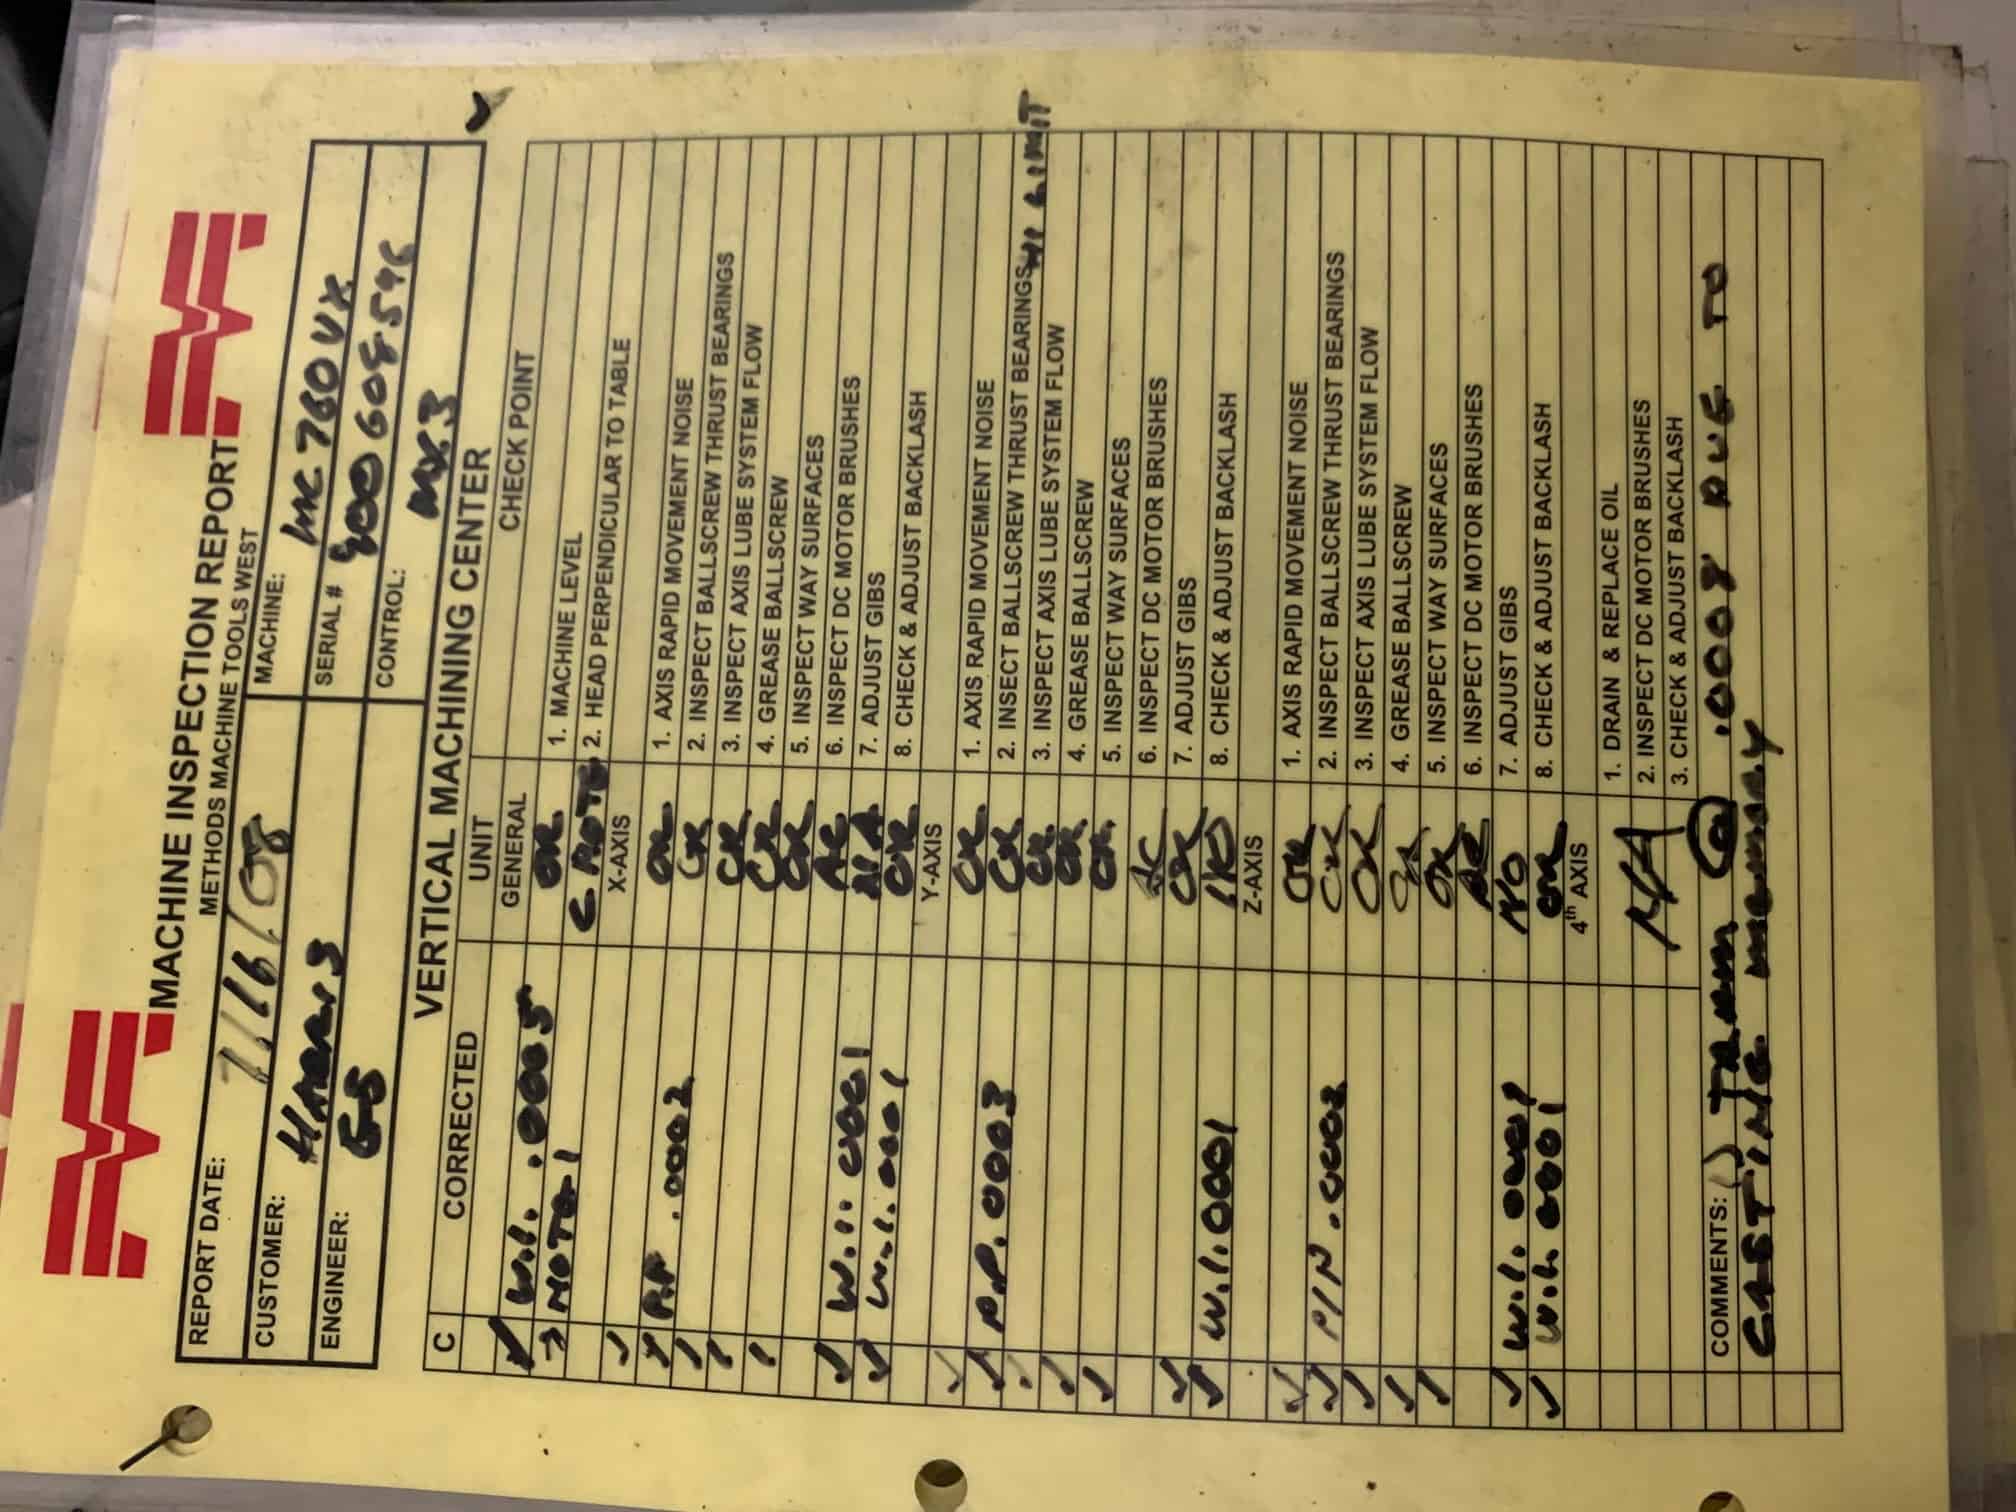 MACHINE INSPECTION REPORT
METHODS MACHINE TOOLS WEST
REPORT DATE: 7/16/08
MACHINE: MC 760VX
CUSTOMER:
SERIAL #
ENGINEER:
CONTROL: MX3
VERTICAL MACHINING CENTER
C CORRECTED UNIT CHECK POINT
GENERAL
W.I. .0005 OK 1. MACHINE LEVEL
NOTE 1 C NOTE 2. HEAD PERPENDICULAR TO TABLE
X-AXIS
OK 1. AXIS RAPID MOVEMENT NOISE
.0002 OK 2. INSPECT BALLSCREW THRUST BEARINGS
OK 3. INSPECT AXIS LUBE SYSTEM FLOW
OK 4. GREASE BALLSCREW
OK 5. INSPECT WAY SURFACES
AC 6. INSPECT DC MOTOR BRUSHES
W.I. .0001 N/A 7. ADJUST GIBS
W.I. .0001 OK 8. CHECK & ADJUST BACKLASH
Y-AXIS
OK 1. AXIS RAPID MOVEMENT NOISE
.0003 OK 2. INSECT BALLSCREW THRUST BEARINGS HI LIMIT
OK 3. INSPECT AXIS LUBE SYSTEM FLOW
OK 4. GREASE BALLSCREW
OK 5. INSPECT WAY SURFACES
AC 6. INSPECT DC MOTOR BRUSHES
OK 7. ADJUST GIBS
W.I. .0001 8. CHECK & ADJUST BACKLASH
Z-AXIS
OK 1. AXIS RAPID MOVEMENT NOISE
PIN .0002 OK 2. INSPECT BALLSCREW THRUST BEARINGS
OK 3. INSPECT AXIS LUBE SYSTEM FLOW
OK 4. GREASE BALLSCREW
OK 5. INSPECT WAY SURFACES
AC 6. INSPECT DC MOTOR BRUSHES
W.I. NO 7. ADJUST GIBS
W.I. .0001 OK 8. CHECK & ADJUST BACKLASH
4th AXIS
1. DRAIN & REPLACE OIL
N/A 2. INSPECT DC MOTOR BRUSHES
3. CHECK & ADJUST BACKLASH
COMMENTS: 1) TRAM @ .0008 DUE TO
CASTING MEMORY